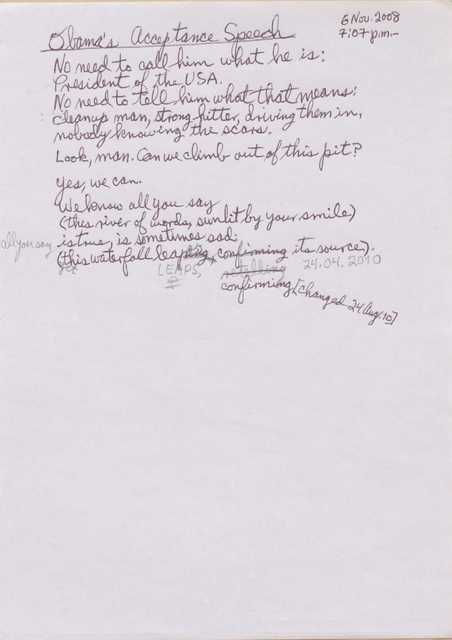 Obama's Acceptance Speech
6 Nov. 2008
7:07 p.m.
No need to call him what he is:
President of the USA.
No need to tell him what that means:
cleanup man, strong hitter, driving them in,
nobody knowing the scars.
Look, man. Can we climb out of this pit?
Yes, we can.
We know all you say
(this river of words, sunlit by your smile)
all you say is true, is sometimes sad
(this waterfall leaping, confirming its source).
LEAPS, 24.04.2010
confirming [changed 24 Aug. 10]